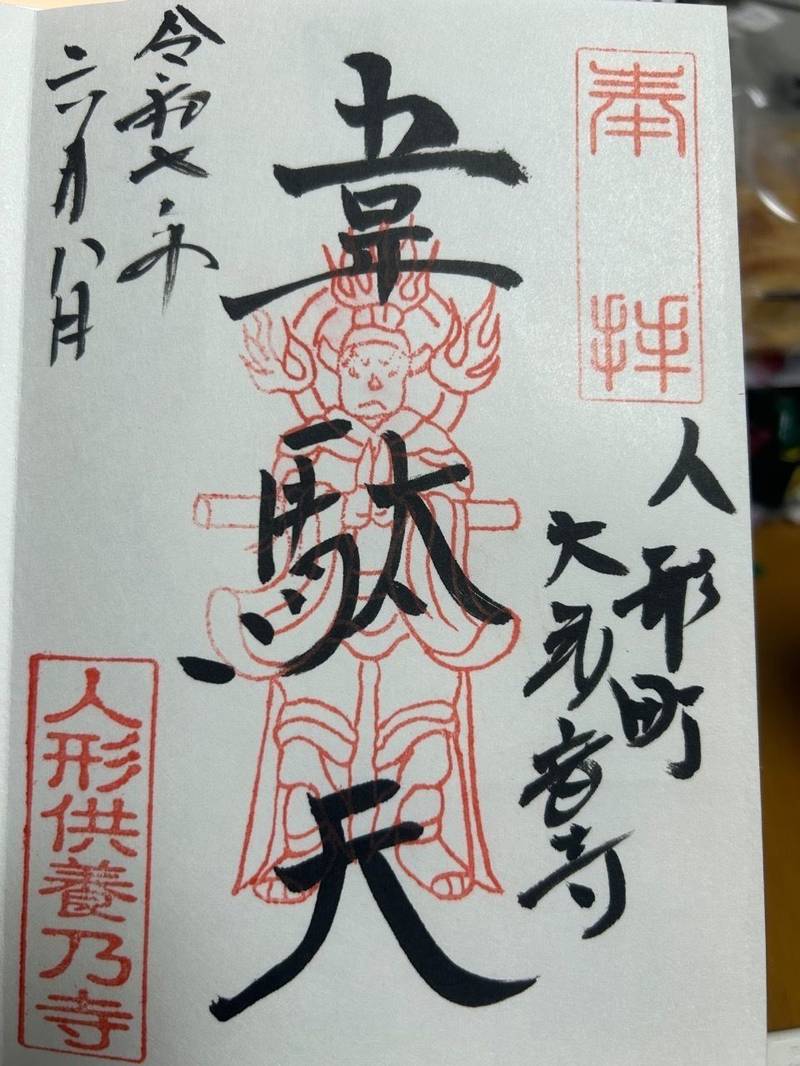 奉拝
人形町
大観音寺
韋駄天
令和七年
六月八日
人形供養乃寺